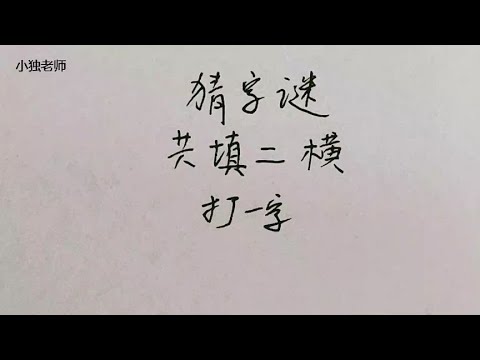 小独老师
猜字谜
共填二横
打一字